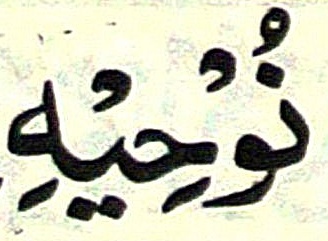 نُوْحِيْهِ